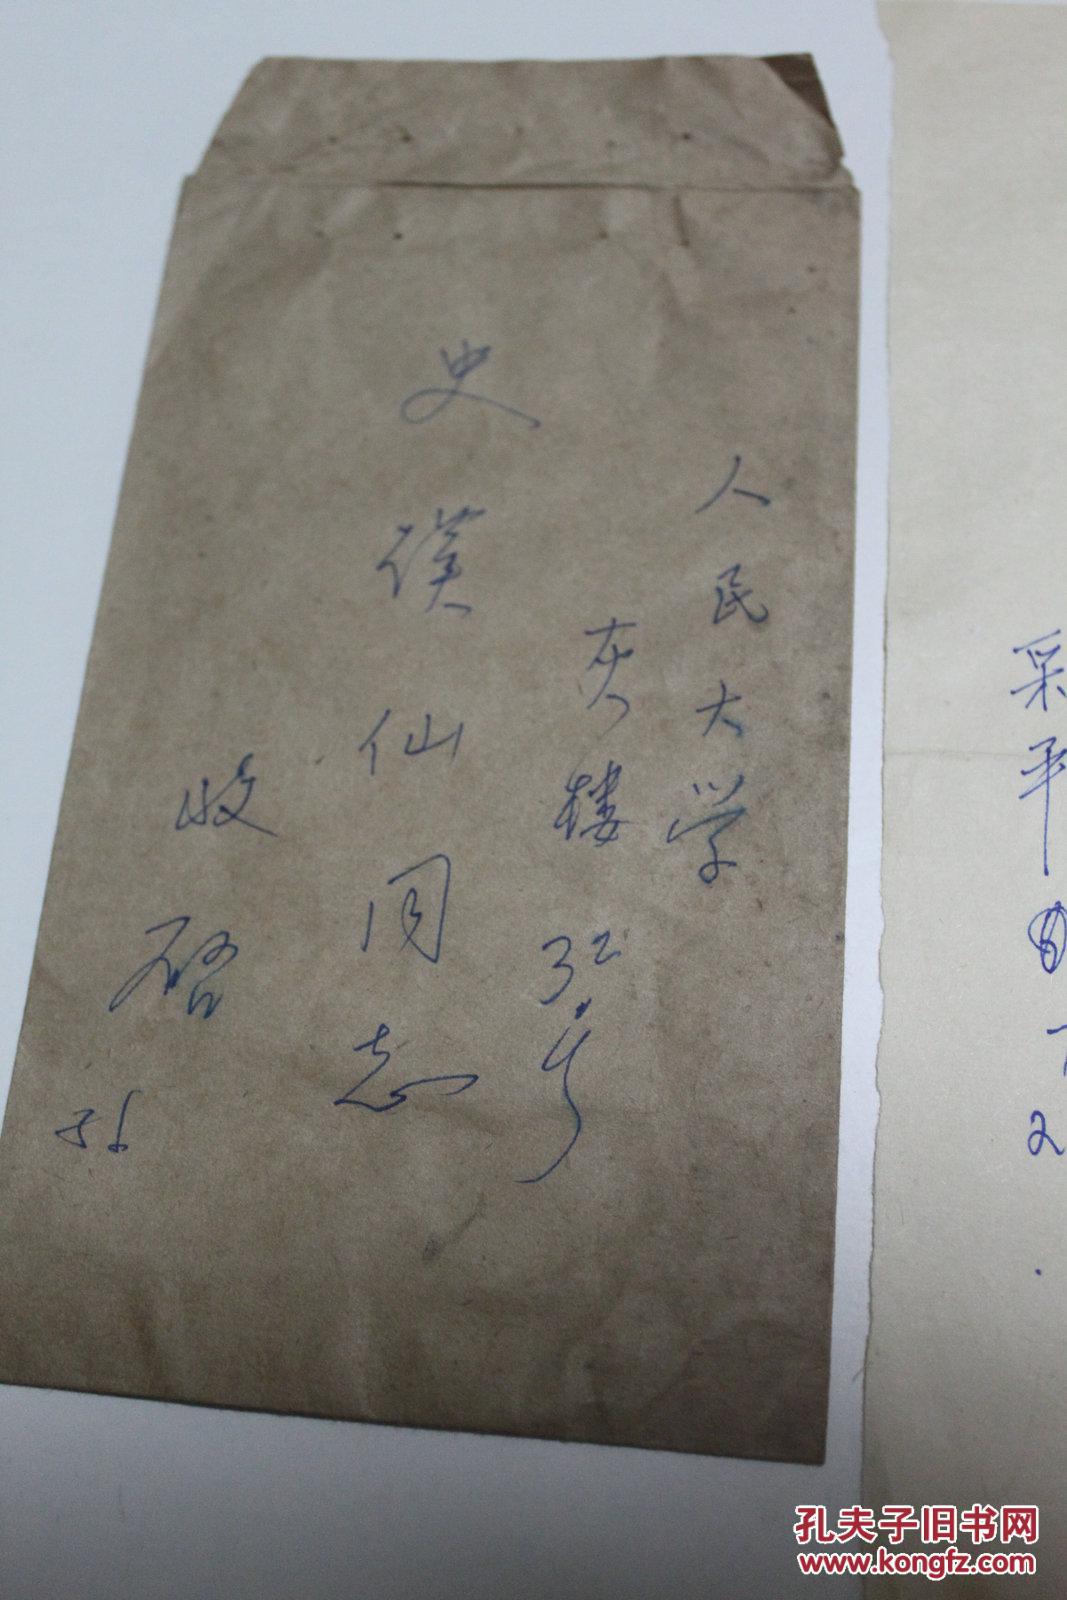 人民大学
灰楼32号
史
仙同志
收
启
采
平
2
孔夫子旧书网
www.kongfz.com